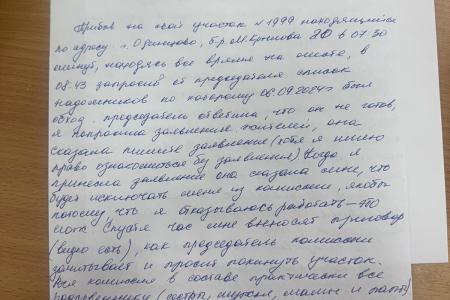 Прибов на свой участок №1999 находящийся
по адресу г. Одинцово, б-р М. Крылова 20 в 07.30
минут, находясь все время на месте, в
08.43 запросив от председателя список
надомников по которому 06.09.2024г был
обход. председатель ответила, что он не готов,
я попросила заявления жителей, она
сказала пишите заявление (хотя я имею
право ознакомиться без заявления) Когда я
принесла заявление она сказала мне, что
будет исключать меня из комиссии, якобы
потому, что я отказываюсь работать - это
ложь. Спустя час мне выносят приговор
(видео есть), как председатель комиссии
зачитывает и просит покинуть участок.
Вся комиссия в составе практически все
родственники (сестры, мужья, мамы и папы)